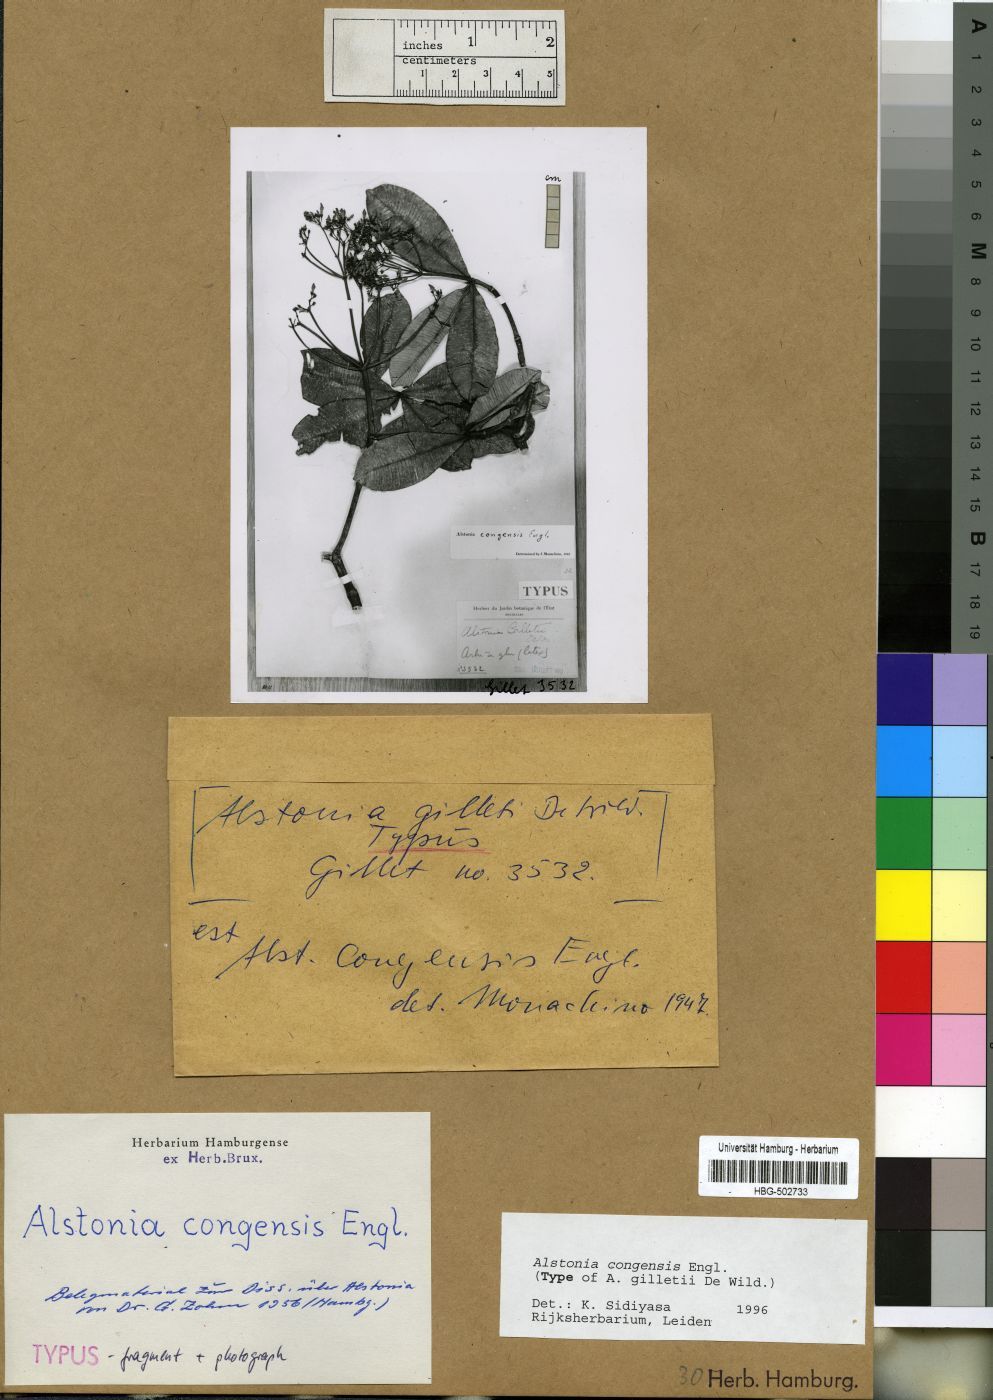 inches 1 2
centimeters
1 2 3 4 5
cm
Alstonia congensis Engl.
Determined by J. Monachino, 194
TYPUS
Herbier du Jardin botanique de l'Etat
Alstonia Gilletii
3532
Gillet 3532
[Alstonia gilleti De Wild.
Typus
Gillet no. 3532.]
est
Alst. congensis Engl.
det. Monachino 1947.
Herbarium Hamburgense
ex Herb.Brux.
Alstonia congensis Engl.
Belegmaterial zur Diss. über Alstonia
von Dr. 1956 (Hambg.)
TYPUS - fragment + photograph
Universität Hamburg - Herbarium
HBG-502733
Alstonia congensis Engl.
(Type of A. gilletii De Wild.)
Det.: K. Sidiyasa 1996
Rijksherbarium, Leiden
30 Herb. Hamburg.
A
1
2
3
4
5
6
M
8
9
10
11
12
13
14
15
B
17
18
19